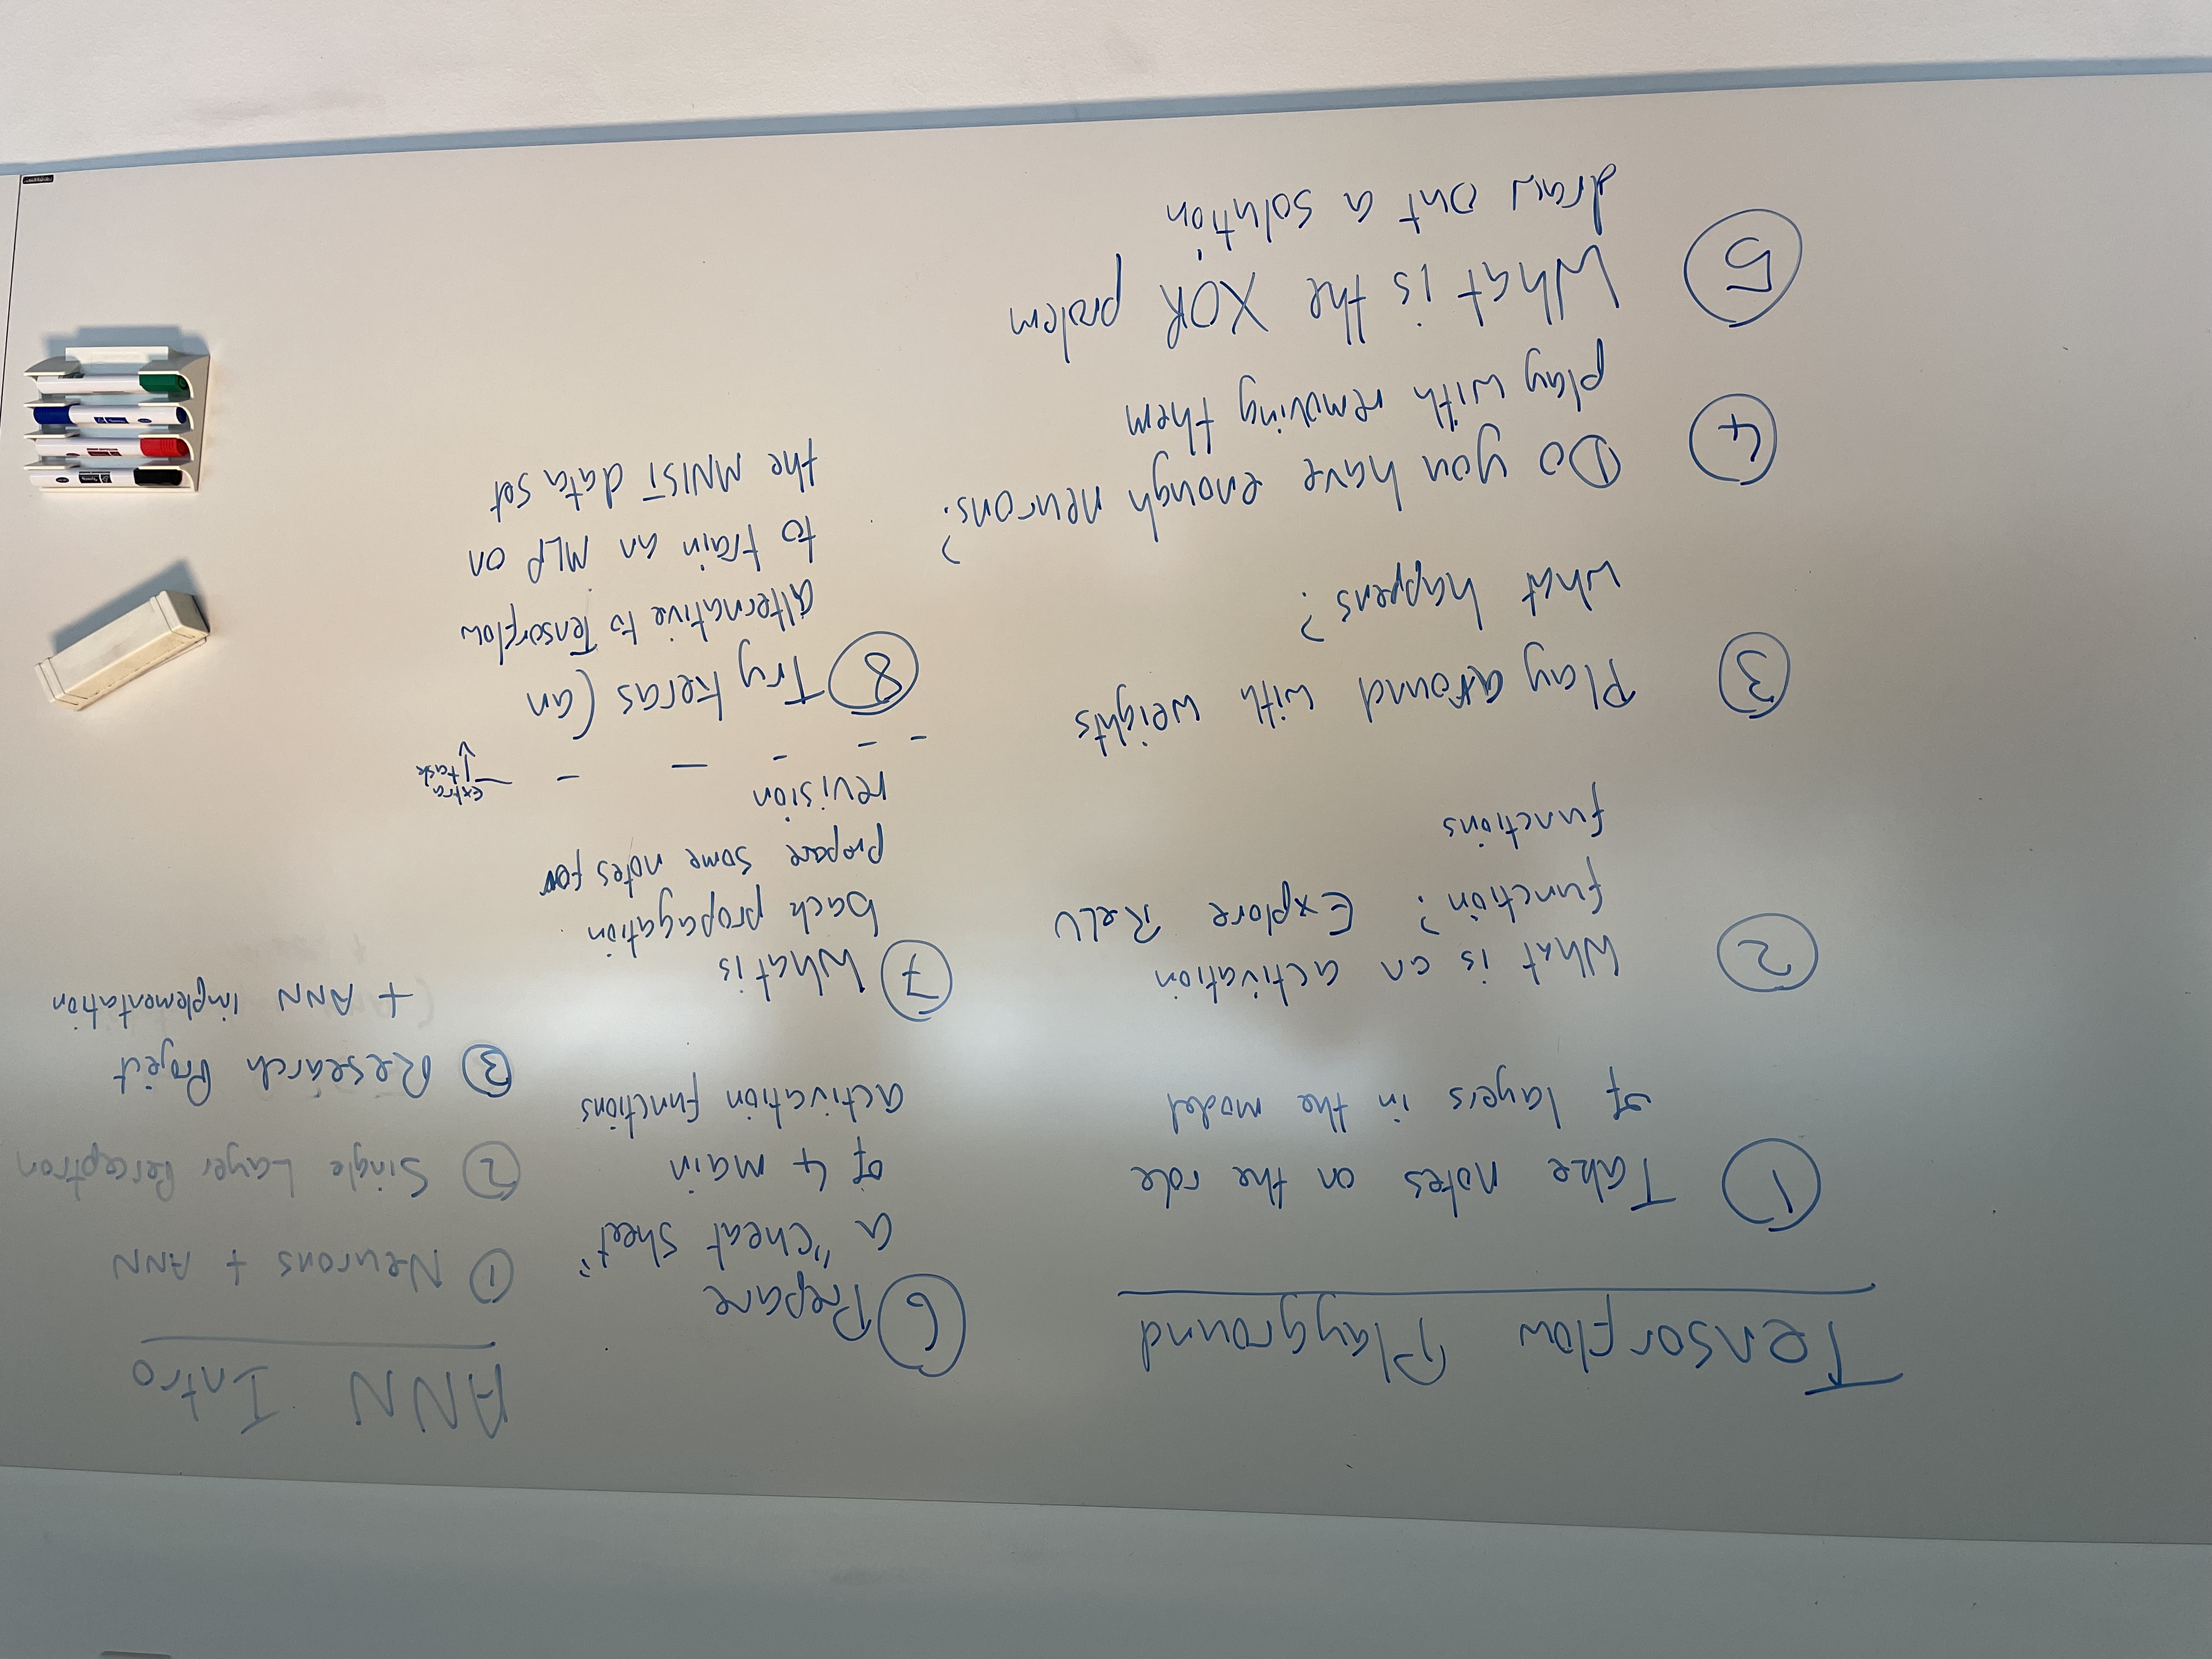 Tensorflow Playground
① Take notes on the role
of layers in the model
② What is an activation
function? Explore ReLU
functions
③ Play around with weights
what happens?
④ Do you have enough neurons?
play with removing them
⑤ What is the XOR prolem
draw out a solution
⑥ Prepare
a "cheat sheet"
of 4 main
activation functions
⑦ What is
back propagation
prepare some notes for
revision
extra
task
⑧ Try keras (an
alternative to Tensorflow
to train an MLP on
the MNIST data set
ANN Intro
① Neurons + ANN
② Single Layer Perceptron
③ Research Project
+ ANN implementation